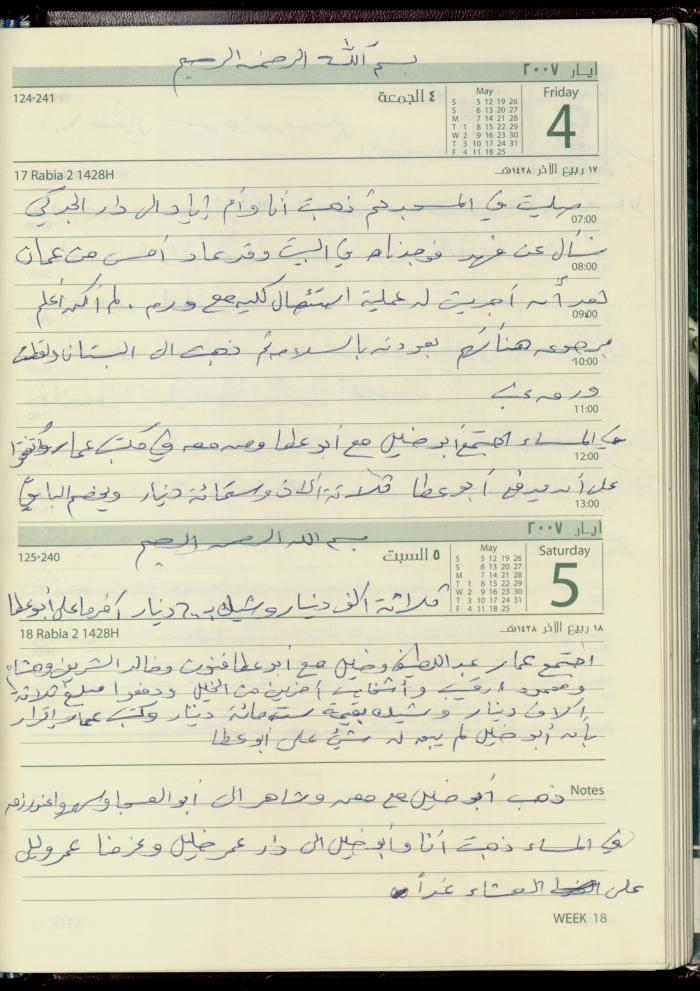 بسم الله الرحمن الرحيم
أيـار ٢٠٠٧
124-241
٤ الجمعة
May
S 5 12 19 26
S 6 13 20 27
M 7 14 21 28
T 1 8 15 22 29
W 2 9 16 23 30
T 3 10 17 24 31
F 4 11 18 25
Friday
4
17 Rabia 2 1428H
١٧ ربيع الآخر ١٤٢٨هـ
صليت في المسجد ثم ذهبت أنا وأم إياد الى دار الجدكي
07:00
نسأل عن فهد فوجدناه في البيت وقد عاد أمس من عمان
08:00
بعد أن أجريت له عملية استئصال كلية مع ورم . لم أكن أعلم
09:00
بمرضه هنأتهم بعودته بالسلامة ثم ذهبت الى البستان ولقطت
10:00
ورق عنب
11:00
في المساء اجتمع أبو خليل مع أبو عطا ومن معه في مكتب عمار واتفقوا
12:00
على أن يدفع أبو عطا ثلاثة آلاف وستمائة دينار ويخصم الباقي
13:00
أيـار ٢٠٠٧
بسم الله الرحمن الرحيم
125-240
٥ السبت
May
S 5 12 19 26
S 6 13 20 27
M 7 14 21 28
T 1 8 15 22 29
W 2 9 16 23 30
T 3 10 17 24 31
F 4 11 18 25
Saturday
5
ثلاثة الف دينار وشيك بـ ٦٠٠ دينار على أبو عطا
18 Rabia 2 1428H
١٨ ربيع الآخر ١٤٢٨هـ
اجتمع عمار عبد اللطيف وخليل مع أبو عطا وخالد الشريف وهشام
ومحمود وأشخاص آخرين من الخليل ودفعوا مبلغ ثلاثة
آلاف دينار وشيك بقيمة ستمائة دينار وكتب عمار إقرار
بأن أبو خليل لم يبق له شيء على أبو عطا
Notes
ذهب أبو خليل مع معن وشاهر الى أبو
في المساء ذهبت أنا وأبو خليل الى دار عمر خليل وعزمنا عمر
على العشاء غداً
WEEK 18